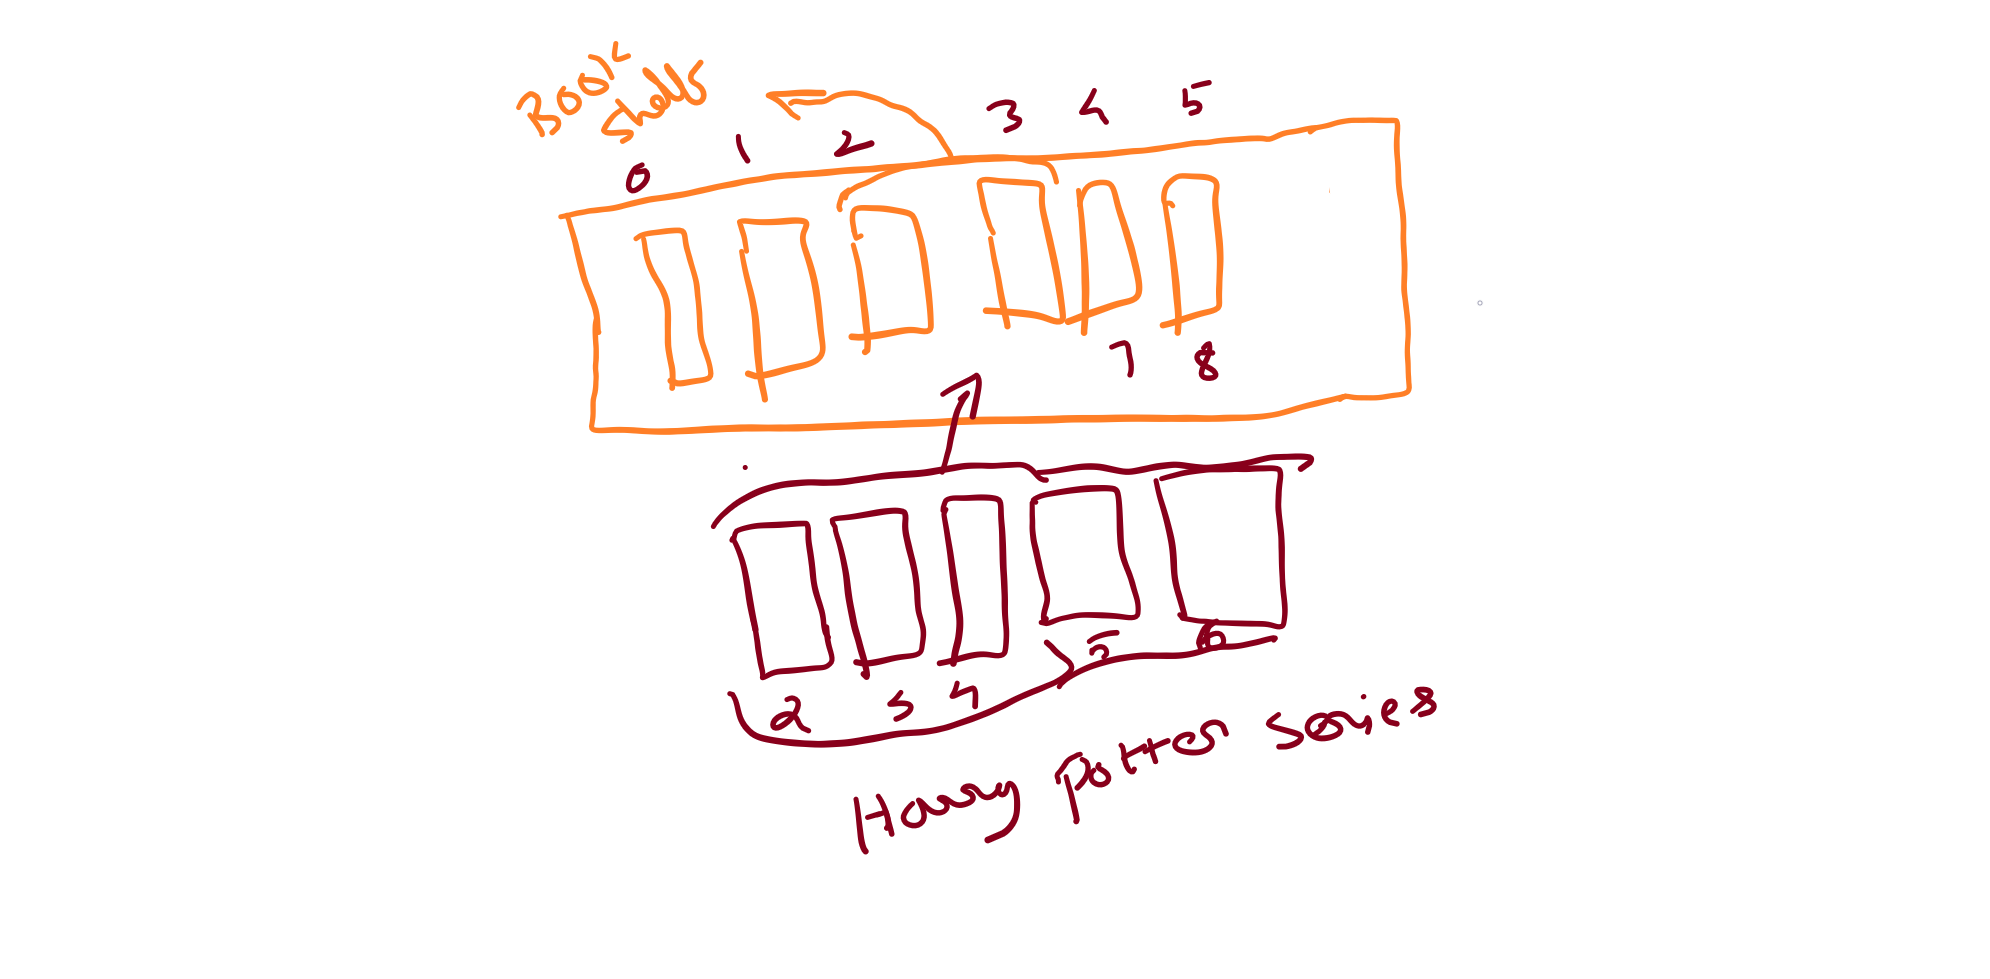 Book
shelf
0 1 2 3 4 5
7 8
2 3 4 5 6
Harry potter series